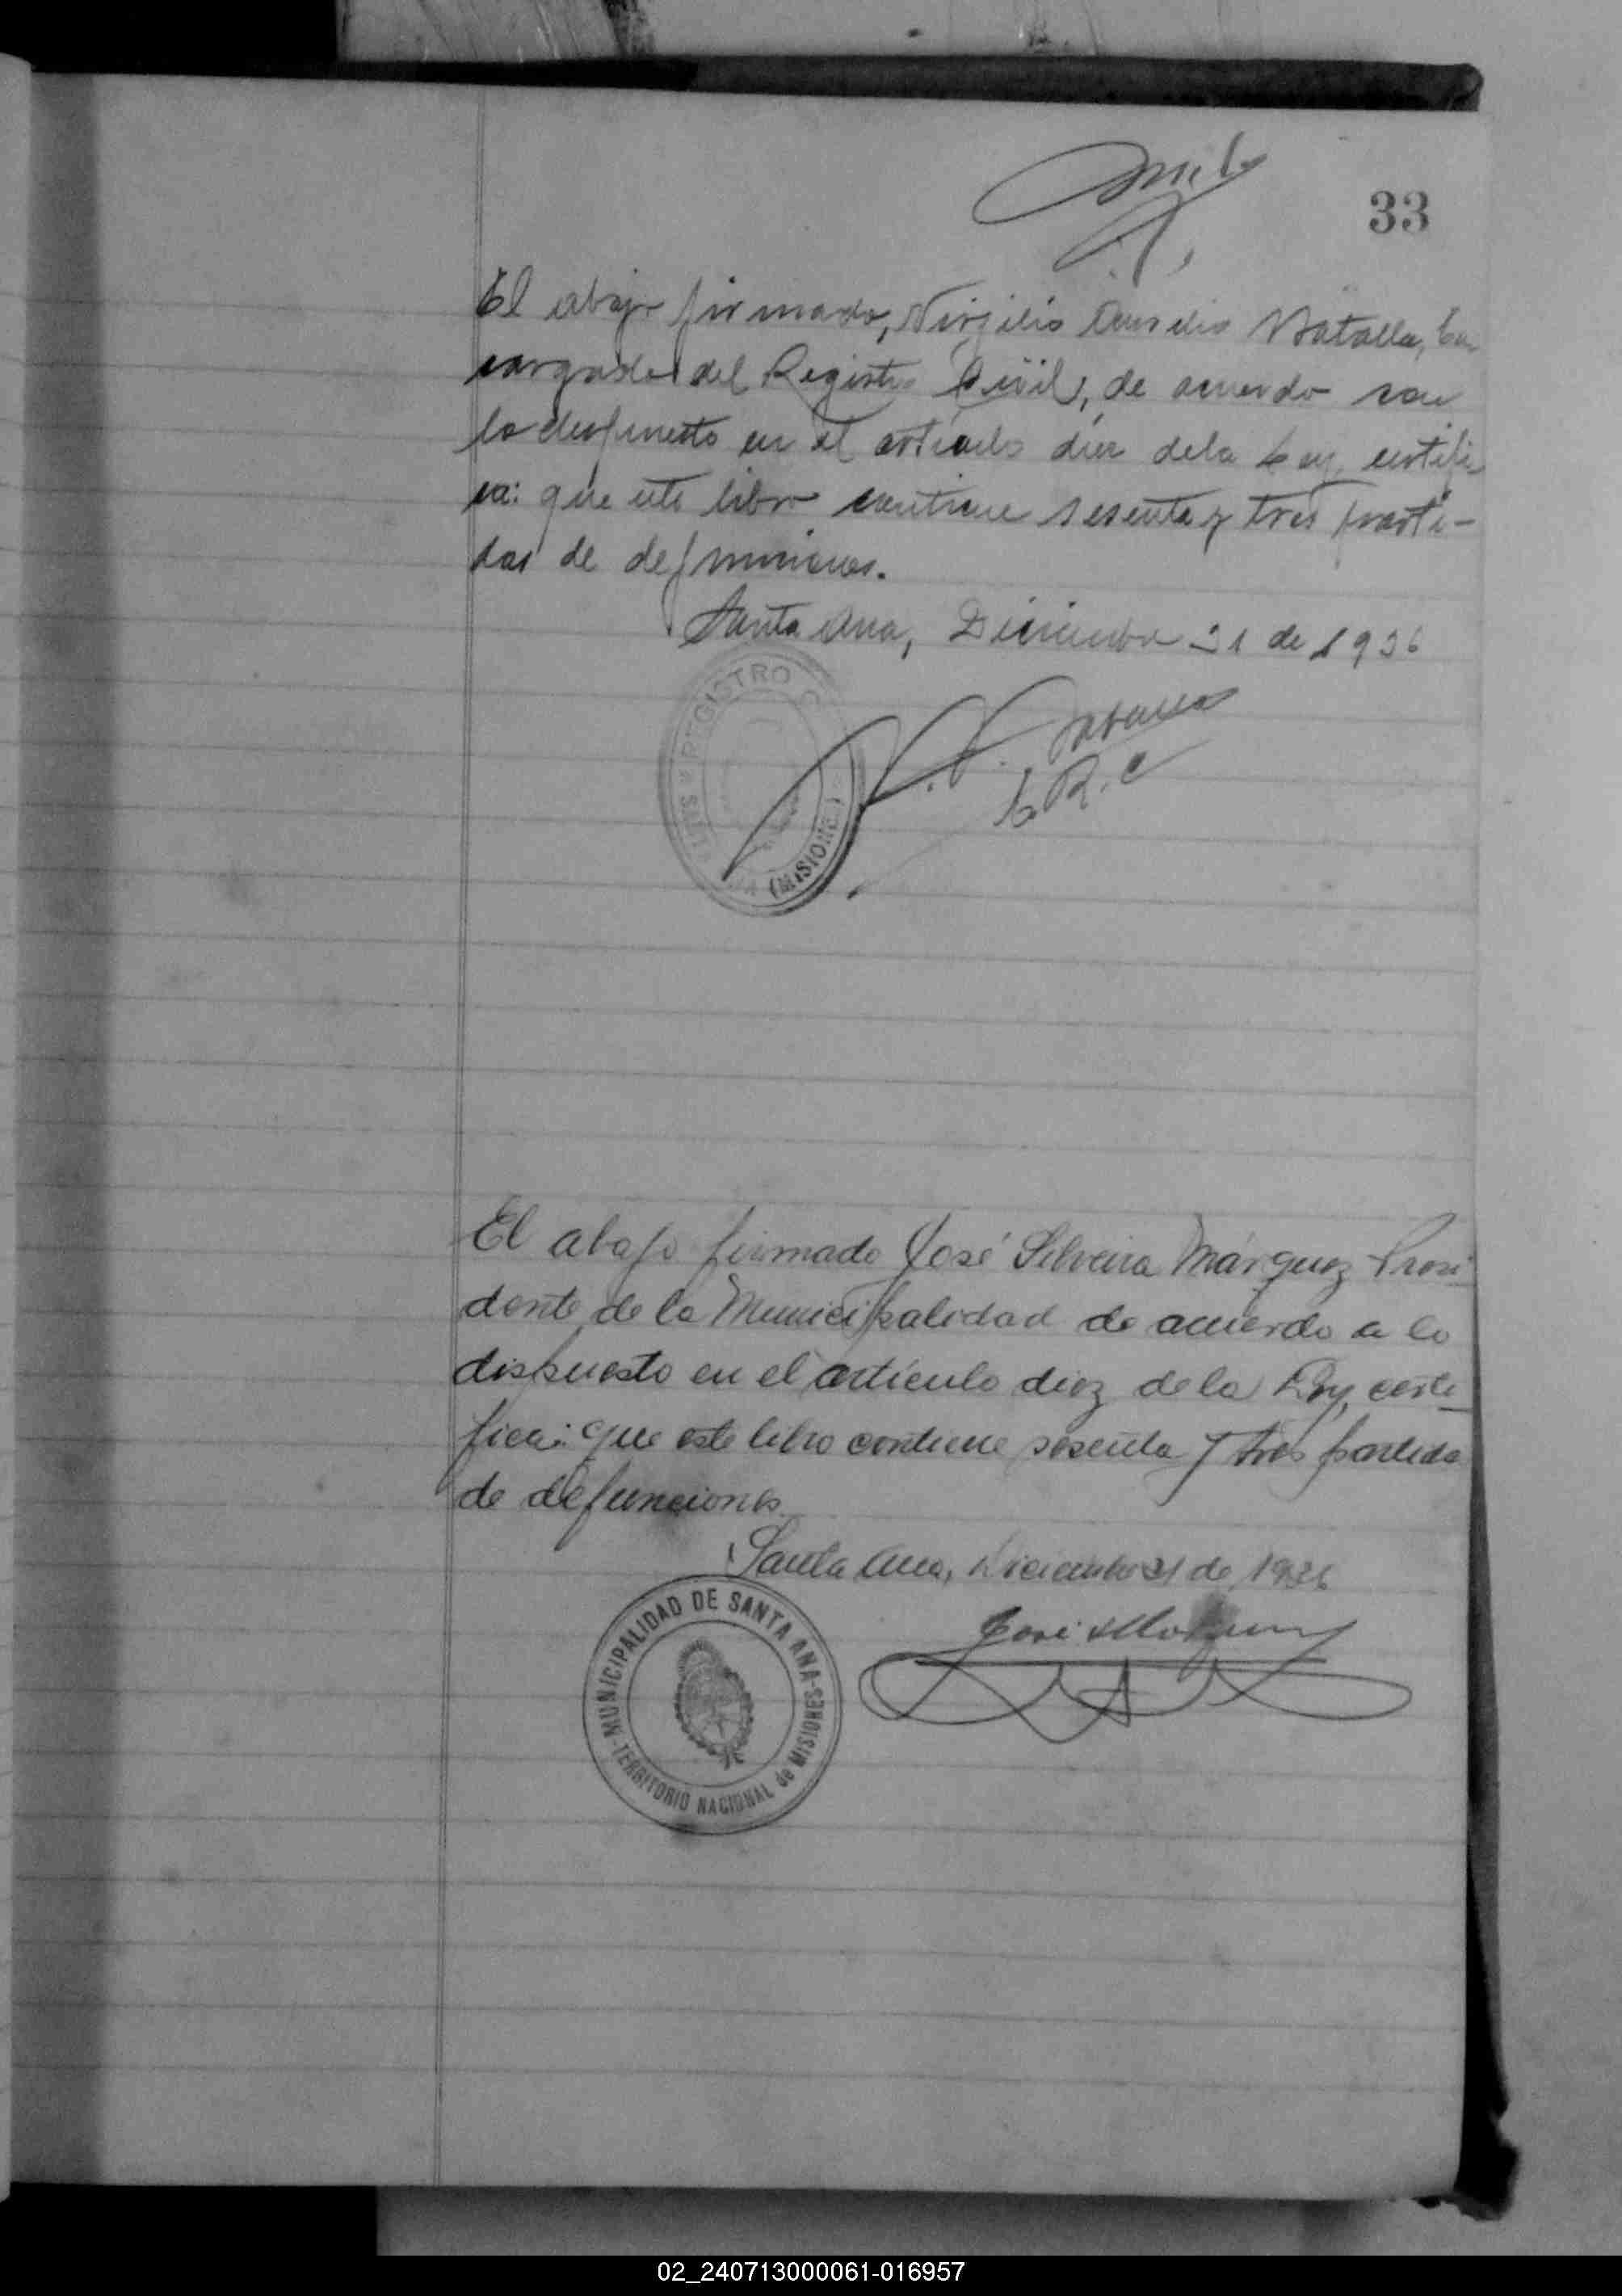 33
El abajo firmado, Virgilio Aurelio Batalla, En
cargado del Registro Civil, de acuerdo con
lo dispuesto en el artículo diez de la Ley, certifi
ca: que este libro contiene sesenta y tres parti-
das de defunciones.
Santa Ana, Diciembre 31 de 1936
REGISTRO
(MISIONES)
E.R.C
El abajo firmado José Silveira Márquez Presi
dente de la Municipalidad de acuerdo a lo
dispuesto en el artículo diez de la Ley, certi
fica: que este libro contiene sesenta y tres partida
de defunciones
Santa Ana, Diciembre 31 de 1936
MUNICIPALIDAD DE SANTA ANA-
TERRITORIO NACIONAL de MISIONES-
02_240713000061-016957